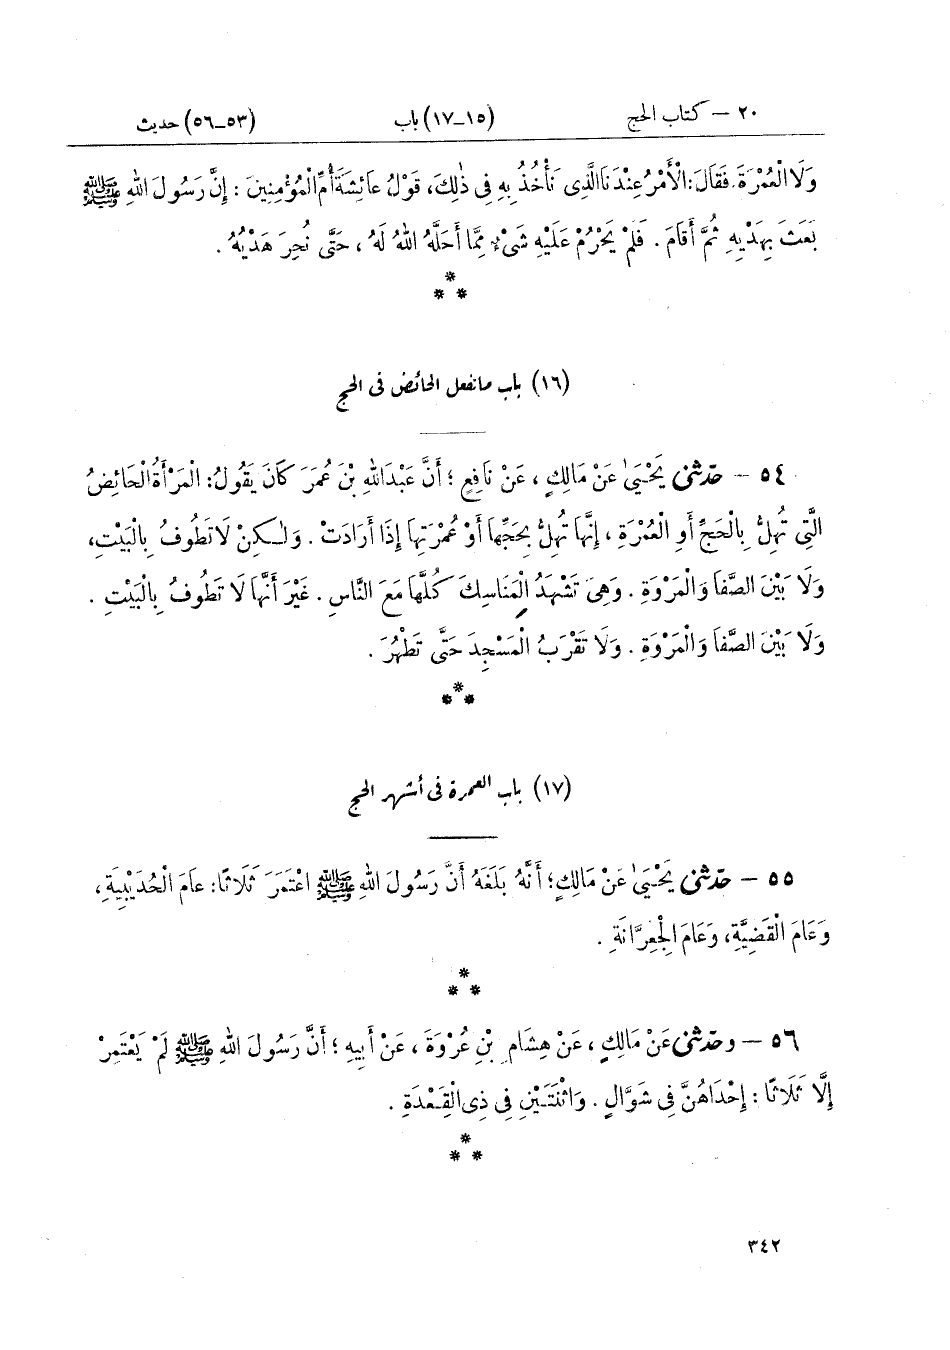 ٢٠ – كتاب الحج (١٥–١٧) باب (٥٣–٥٦) حديث
وَلَا الْعُمْرَةَ. فَقَالَ: الْأَمْرُ عِنْدَنَا الَّذِى نَأْخُذُ بِهِ فِى ذٰلِكَ، قَوْلُ عَائِشَةَ أُمِّ الْمُؤْمِنِينَ : إِنَّ رَسُولَ اللهِ ﷺ
بَعَثَ بِهَدْيِهِ ثُمَّ أَقَامَ . فَلَمْ يَحْرُمْ عَلَيْهِ شَىْءٌ مِمَّا أَحَلَّهُ اللهُ لَهُ ، حَتَّى نُحِرَ هَدْيُهُ .
*
* *
(١٦) باب ما تفعل الحائض فى الحج
٥٤ – حدّثنى يَحْيَىٰ عَنْ مَالِكٍ ، عَنْ نَافِعٍ ؛ أَنَّ عَبْدَ اللهِ بْنَ عُمَرَ كَانَ يَقُولُ: الْمَرْأَةُ الْحَائِضُ
الَّتِى تُهِلُّ بِالْحَجِّ أَوِ الْعُمْرَةِ ، إِنَّهَا تُهِلُّ بِحَجِّهَا أَوْ عُمْرَتِهَا إِذَا أَرَادَتْ . وَلٰكِنْ لَا تَطُوفُ بِالْبَيْتِ،
وَلَا بَيْنَ الصَّفَا وَالْمَرْوَةِ . وَهِىَ تَشْهَدُ الْمَنَاسِكَ كُلَّهَا مَعَ النَّاسِ . غَيْرَ أَنَّهَا لَا تَطُوفُ بِالْبَيْتِ .
وَلَا بَيْنَ الصَّفَا وَالْمَرْوَةِ . وَلَا تَقْرَبُ الْمَسْجِدَ حَتَّى تَطْهُرَ .
*
* *
(١٧) باب العمرة فى أشهر الحج
٥٥ – حدّثنى يَحْيَىٰ عَنْ مَالِكٍ؛ أَنَّهُ بَلَغَهُ أَنَّ رَسُولَ اللهِ ﷺ اعْتَمَرَ ثَلَاثًا: عَامَ الْحُدَيْبِيَةِ ،
وَعَامَ الْقَضِيَّةِ، وَعَامَ الْجِعِرَّانَةِ .
*
* *
٥٦ – وحدّثنى عَنْ مَالِكٍ ، عَنْ هِشَامِ بْنِ عُرْوَةَ ، عَنْ أَبِيهِ ؛ أَنَّ رَسُولَ اللهِ ﷺ لَمْ يَعْتَمِرْ
إِلَّا ثَلَاثًا : إِحْدَاهُنَّ فِى شَوَّالٍ . وَاثْنَتَيْنِ فِى ذِى الْقَعْدَةِ .
*
* *
٣٤٢